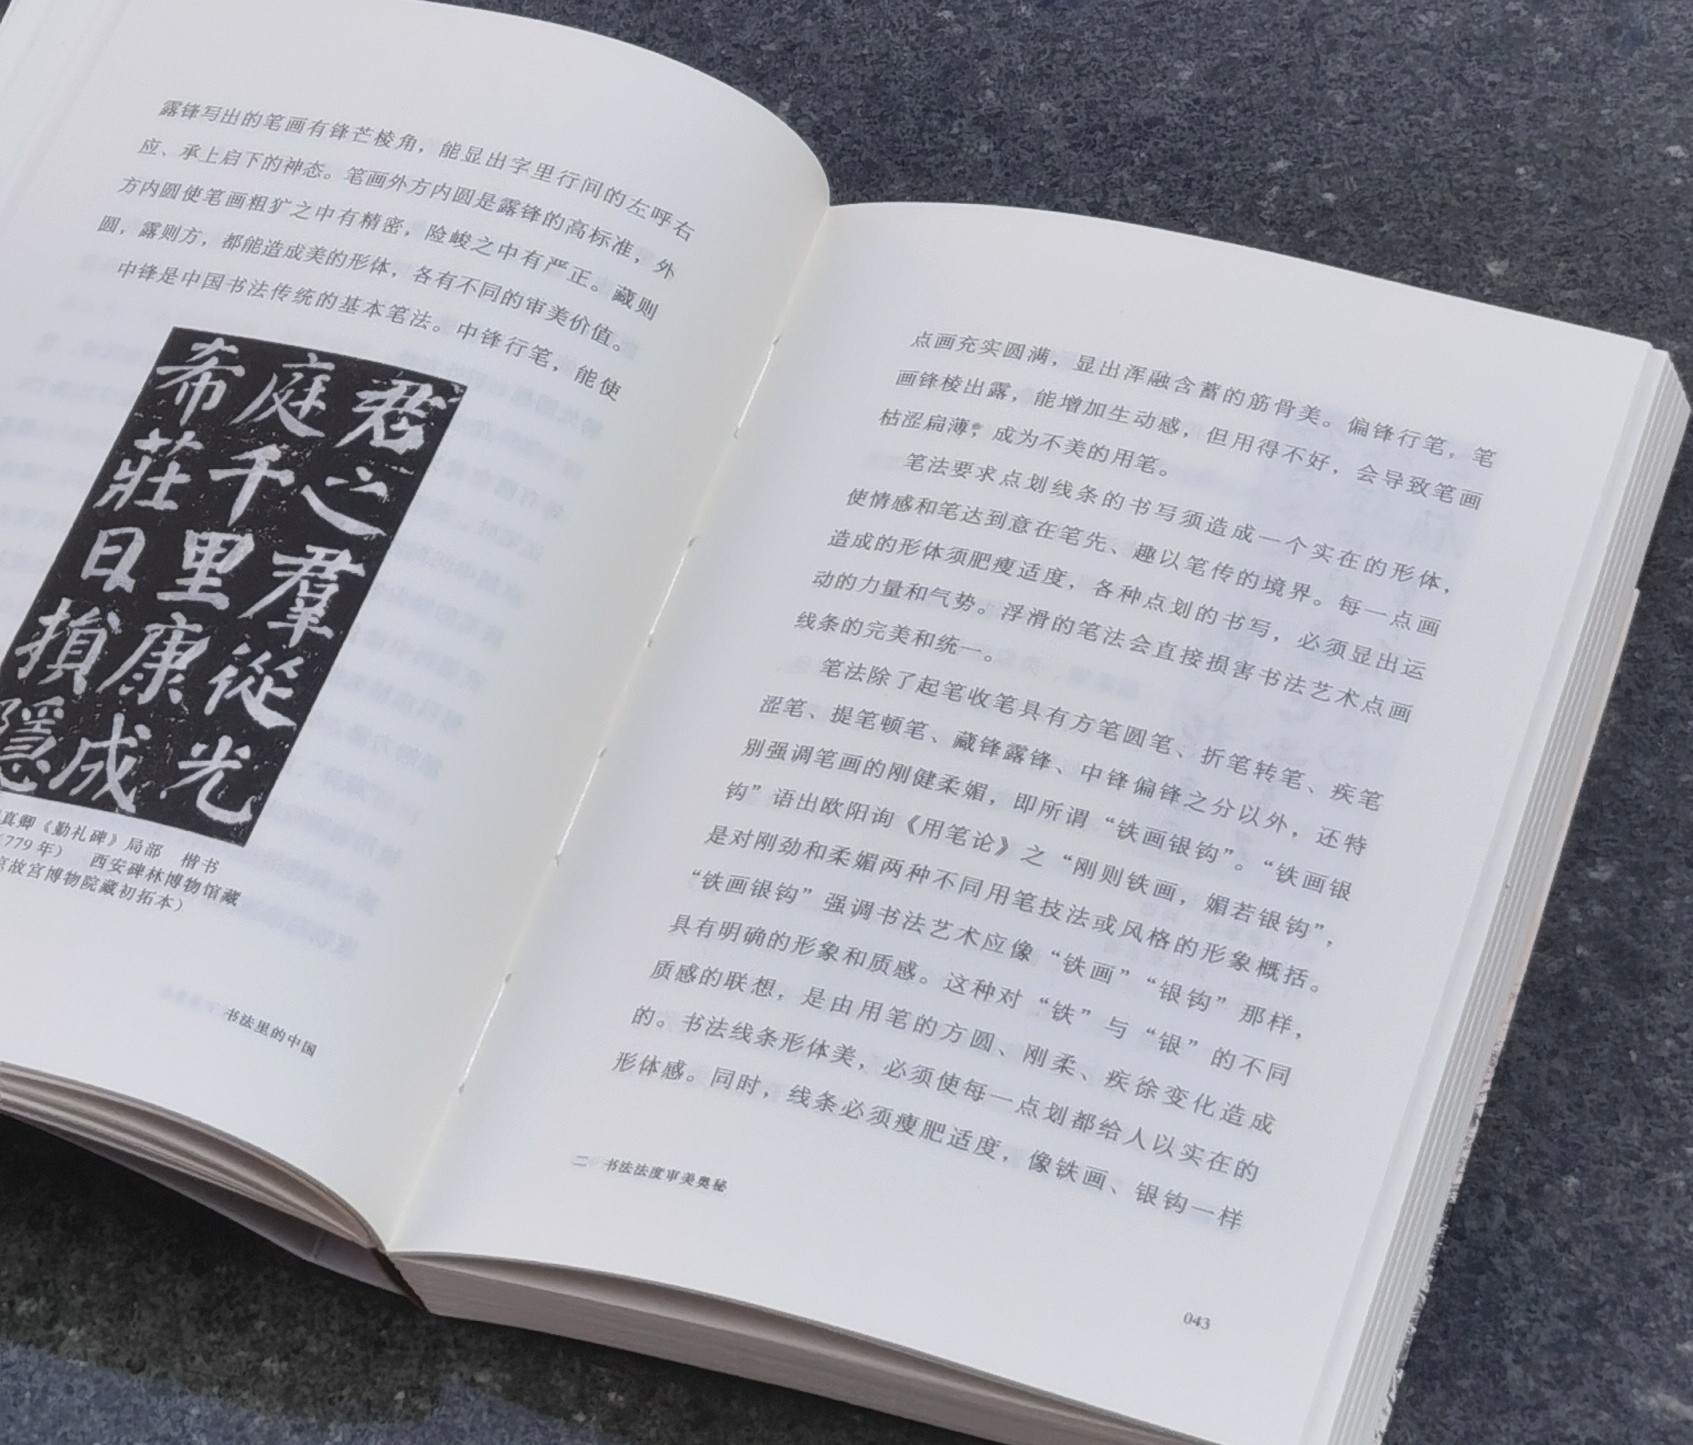 露锋写出的笔画有锋芒棱角，能显出字里行间的左呼右
应、承上启下的神态。笔画外方内圆是露锋的高标准，外
方内圆使笔画粗犷之中有精密，险峻之中有严正。藏则
圆，露则方，都能造成美的形体，各有不同的审美价值。
中锋是中国书法传统的基本笔法。中锋行笔，能使
君之羣從光
庭千里康成
希莊日損隱
真卿《勤礼碑》局部 楷书
（779年） 西安碑林博物馆藏
京故宫博物院藏初拓本）
书法里的中国
点画充实圆满，显出浑融含蓄的筋骨美。偏锋行笔，笔
画锋棱出露，能增加生动感，但用得不好，会导致笔画
枯涩扁薄，成为不美的用笔。
笔法要求点划线条的书写须造成一个实在的形体，
使情感和笔达到意在笔先、趣以笔传的境界。每一点画
造成的形体须肥瘦适度，各种点划的书写，必须显出运
动的力量和气势。浮滑的笔法会直接损害书法艺术点画
线条的完美和统一。
笔法除了起笔收笔具有方笔圆笔、折笔转笔、疾笔
涩笔、提笔顿笔、藏锋露锋、中锋偏锋之分以外，还特
别强调笔画的刚健柔媚，即所谓“铁画银钩”。“铁画银
钩”语出欧阳询《用笔论》之“刚则铁画，媚若银钩”，
是对刚劲和柔媚两种不同用笔技法或风格的形象概括。
“铁画银钩”强调书法艺术应像“铁画”“银钩”那样，
具有明确的形象和质感。这种对“铁”与“银”的不同
质感的联想，是由用笔的方圆、刚柔、疾徐变化造成
的。书法线条形体美，必须使每一点划都给人以实在的
形体感。同时，线条必须瘦肥适度，像铁画、银钩一样
二 书法法度审美奥秘
043